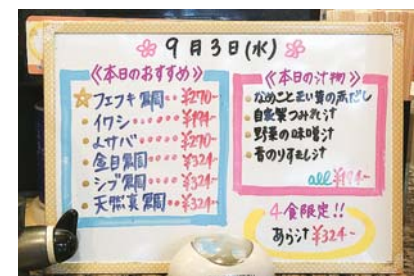 9月3日(水)
《本日のおすすめ》
☆フエフキ鯛‥¥270-
イワシ‥‥¥194-
〆サバ‥‥¥270-
金目鯛‥¥324-
シブ鯛‥‥¥324-
天然真鯛‥¥324-
《本日の汁物》
なめことまい茸の赤だし
自家製つみれ汁
野菜の味噌汁
青のりすまし汁
all ¥194-
4食限定!!
あら汁 ¥324-